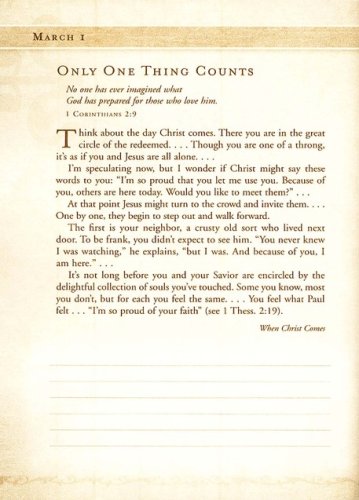 March 1
Only One Thing Counts
No one has ever imagined what
God has prepared for those who love him.
1 Corinthians 2:9
Think about the day Christ comes. There you are in the great
circle of the redeemed. . . . Though you are one of a throng,
it's as if you and Jesus are all alone. . . .
I'm speculating now, but I wonder if Christ might say these
words to you: "I'm so proud that you let me use you. Because of
you, others are here today. Would you like to meet them?" . . .
At that point Jesus might turn to the crowd and invite them. . . .
One by one, they begin to step out and walk forward.
The first is your neighbor, a crusty old sort who lived next
door. To be frank, you didn't expect to see him. "You never knew
I was watching," he explains, "but I was. And because of you, I
am here." . . .
It's not long before you and your Savior are encircled by the
delightful collection of souls you've touched. Some you know, most
you don't, but for each you feel the same. . . . You feel what Paul
felt . . . "I'm so proud of your faith" (see 1 Thess. 2:19).
When Christ Comes